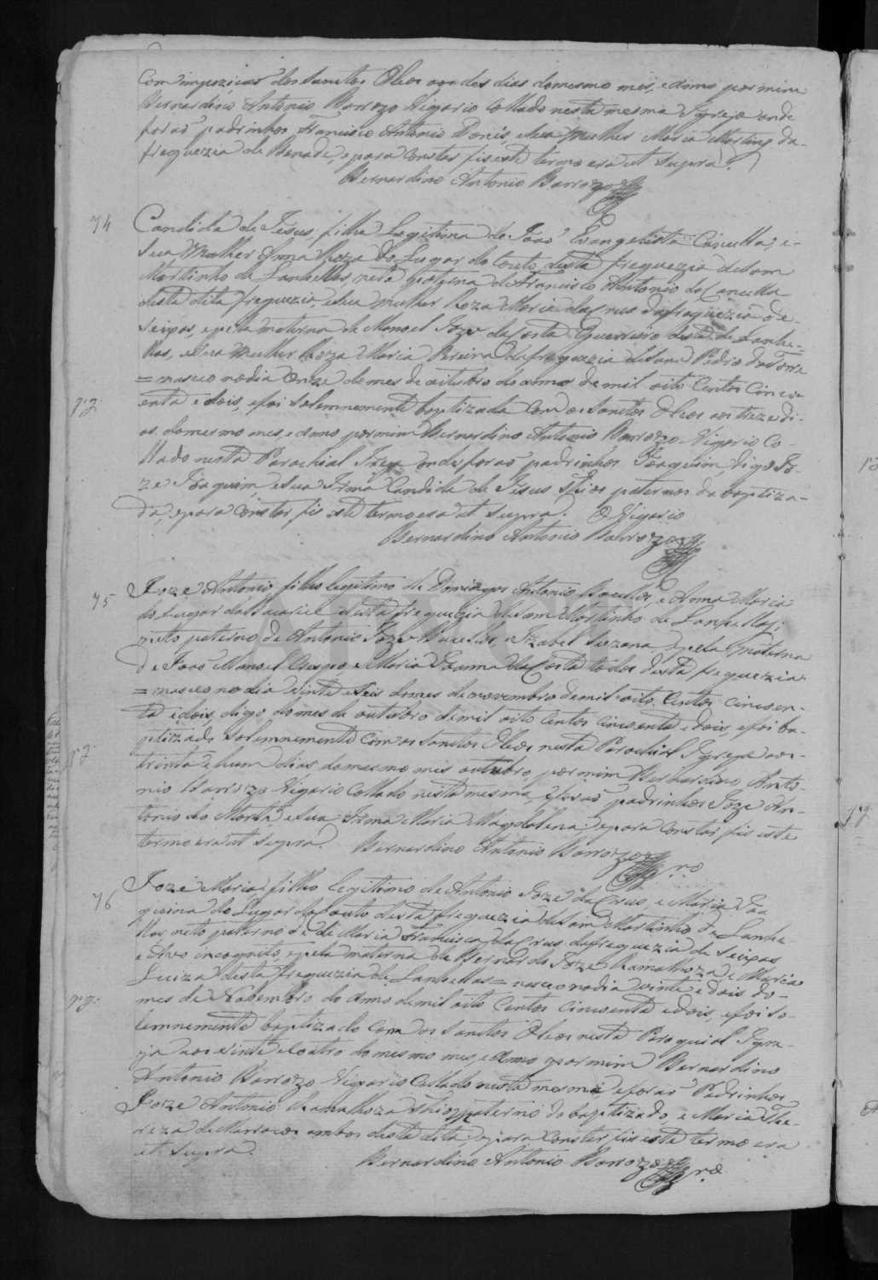 Com impozicao dos Sanctos Oleos aos des dias domesmo mes, e anno por mim
Bernardino Antonio Barrozo Vigario Collado nesta mesma Igreja onde
foraõ padrinhos Francisco Antonio Diniz, e sua mulher Maria Martins da
freguezia de e para Constar fis este termo era ut Supra.
Bernardino Antonio Barrozo
74
Candida de Jesus, filha Legitima de Joaõ Evangelista Cancella, e
Sua Mulher Anna Roza do Lugar do Couto desta freguezia de Sam
Martinho de Lanhellas, neta paterna de Francisco Antonio da Cancella
desta dita freguezia e sua mulher Roza Maria da Crus da freguezia de
Seixas, e pela materna de Manoel Joze da Costa Guerreiro desta de Lanhe=
llas, e Sua Mulher Roza Maria Pereira da freguezia de Sam Pedro da Torre
= nasceo no dia Onze do mes de outubro do anno de mil oito Centos Cinco
enta e dois, e foi Solemnemente baptizada Com os Sanctos Oleos aos treze di-
as domesmo mes, e anno por mim Bernardino Antonio Barrozo Vigario Co-
llado nesta Parochial Igreja onde foraõ padrinhos Joaquim, digo Jo-
ze Joaquim e sua Irmã Candida de Jesus tios paternos da baptiza-
da, e para Constar fis este termo era ut Supra. O Vigario
Bernardino Antonio Barrozo
75
Joze Antonio filho legitimo de Domingos Antonio e Anna Maria
do Lugar desta freguezia de Sam Martinho de Lanhellas;
neto paterno de Antonio Joze e Izabel Suzana, e pela materna
de Joaõ Manoel Crespo e Maria Joanna da Costa todos desta freguezia
= nasceo no dia vinte e seis do mes de novembro de mil oito Centos Cincoen-
ta e dois, digo do mes de outubro de mil oito Centos Cincoenta e dois, e foi ba-
ptizado Solemnemente Com os Sanctos Oleos nesta Parochial Igreja aos
trinta e hum dias do mesmo mes outubro, por mim Bernardino Anto-
nio Barrozo Vigario Collado nesta mesma, e foraõ padrinhos Joze An-
tonio da e sua Irma Maria Magdalena, e para Constar fis este
termo era ut Supra. Bernardino Antonio Barrozo
76
Joze Maria filho legitimo de Antonio Joze da Crus, e Maria Joa
quina do Lugar do Couto desta freguezia de Sam Martinho de Lanhe
llas neto paterno de Maria Francisca da Crus da freguezia de Seixas
e Avo incognito, e pela materna de Bernardo Joze Ramalhoza e Maria
Luiza desta freguezia de Lanhellas = nasceo no dia vinte e dois do
mes de Novembro do anno de mil oito Centos Cincoenta e dois, e foi So-
lemnemente baptizado Com os Sanctos Oleos nesta Paroquial Igre-
ja aos vinte e coatro do mesmo mes, e anno por mim Bernardino
Antonio Barrozo Vigario Collado nesta mesma e foraõ Padrinhos
Joze Antonio Ramalhoza do baptizado e Maria The-
reza ambos desta dita, e para Constar fis este termo era
ut Supra.
Bernardino Antonio Barrozo